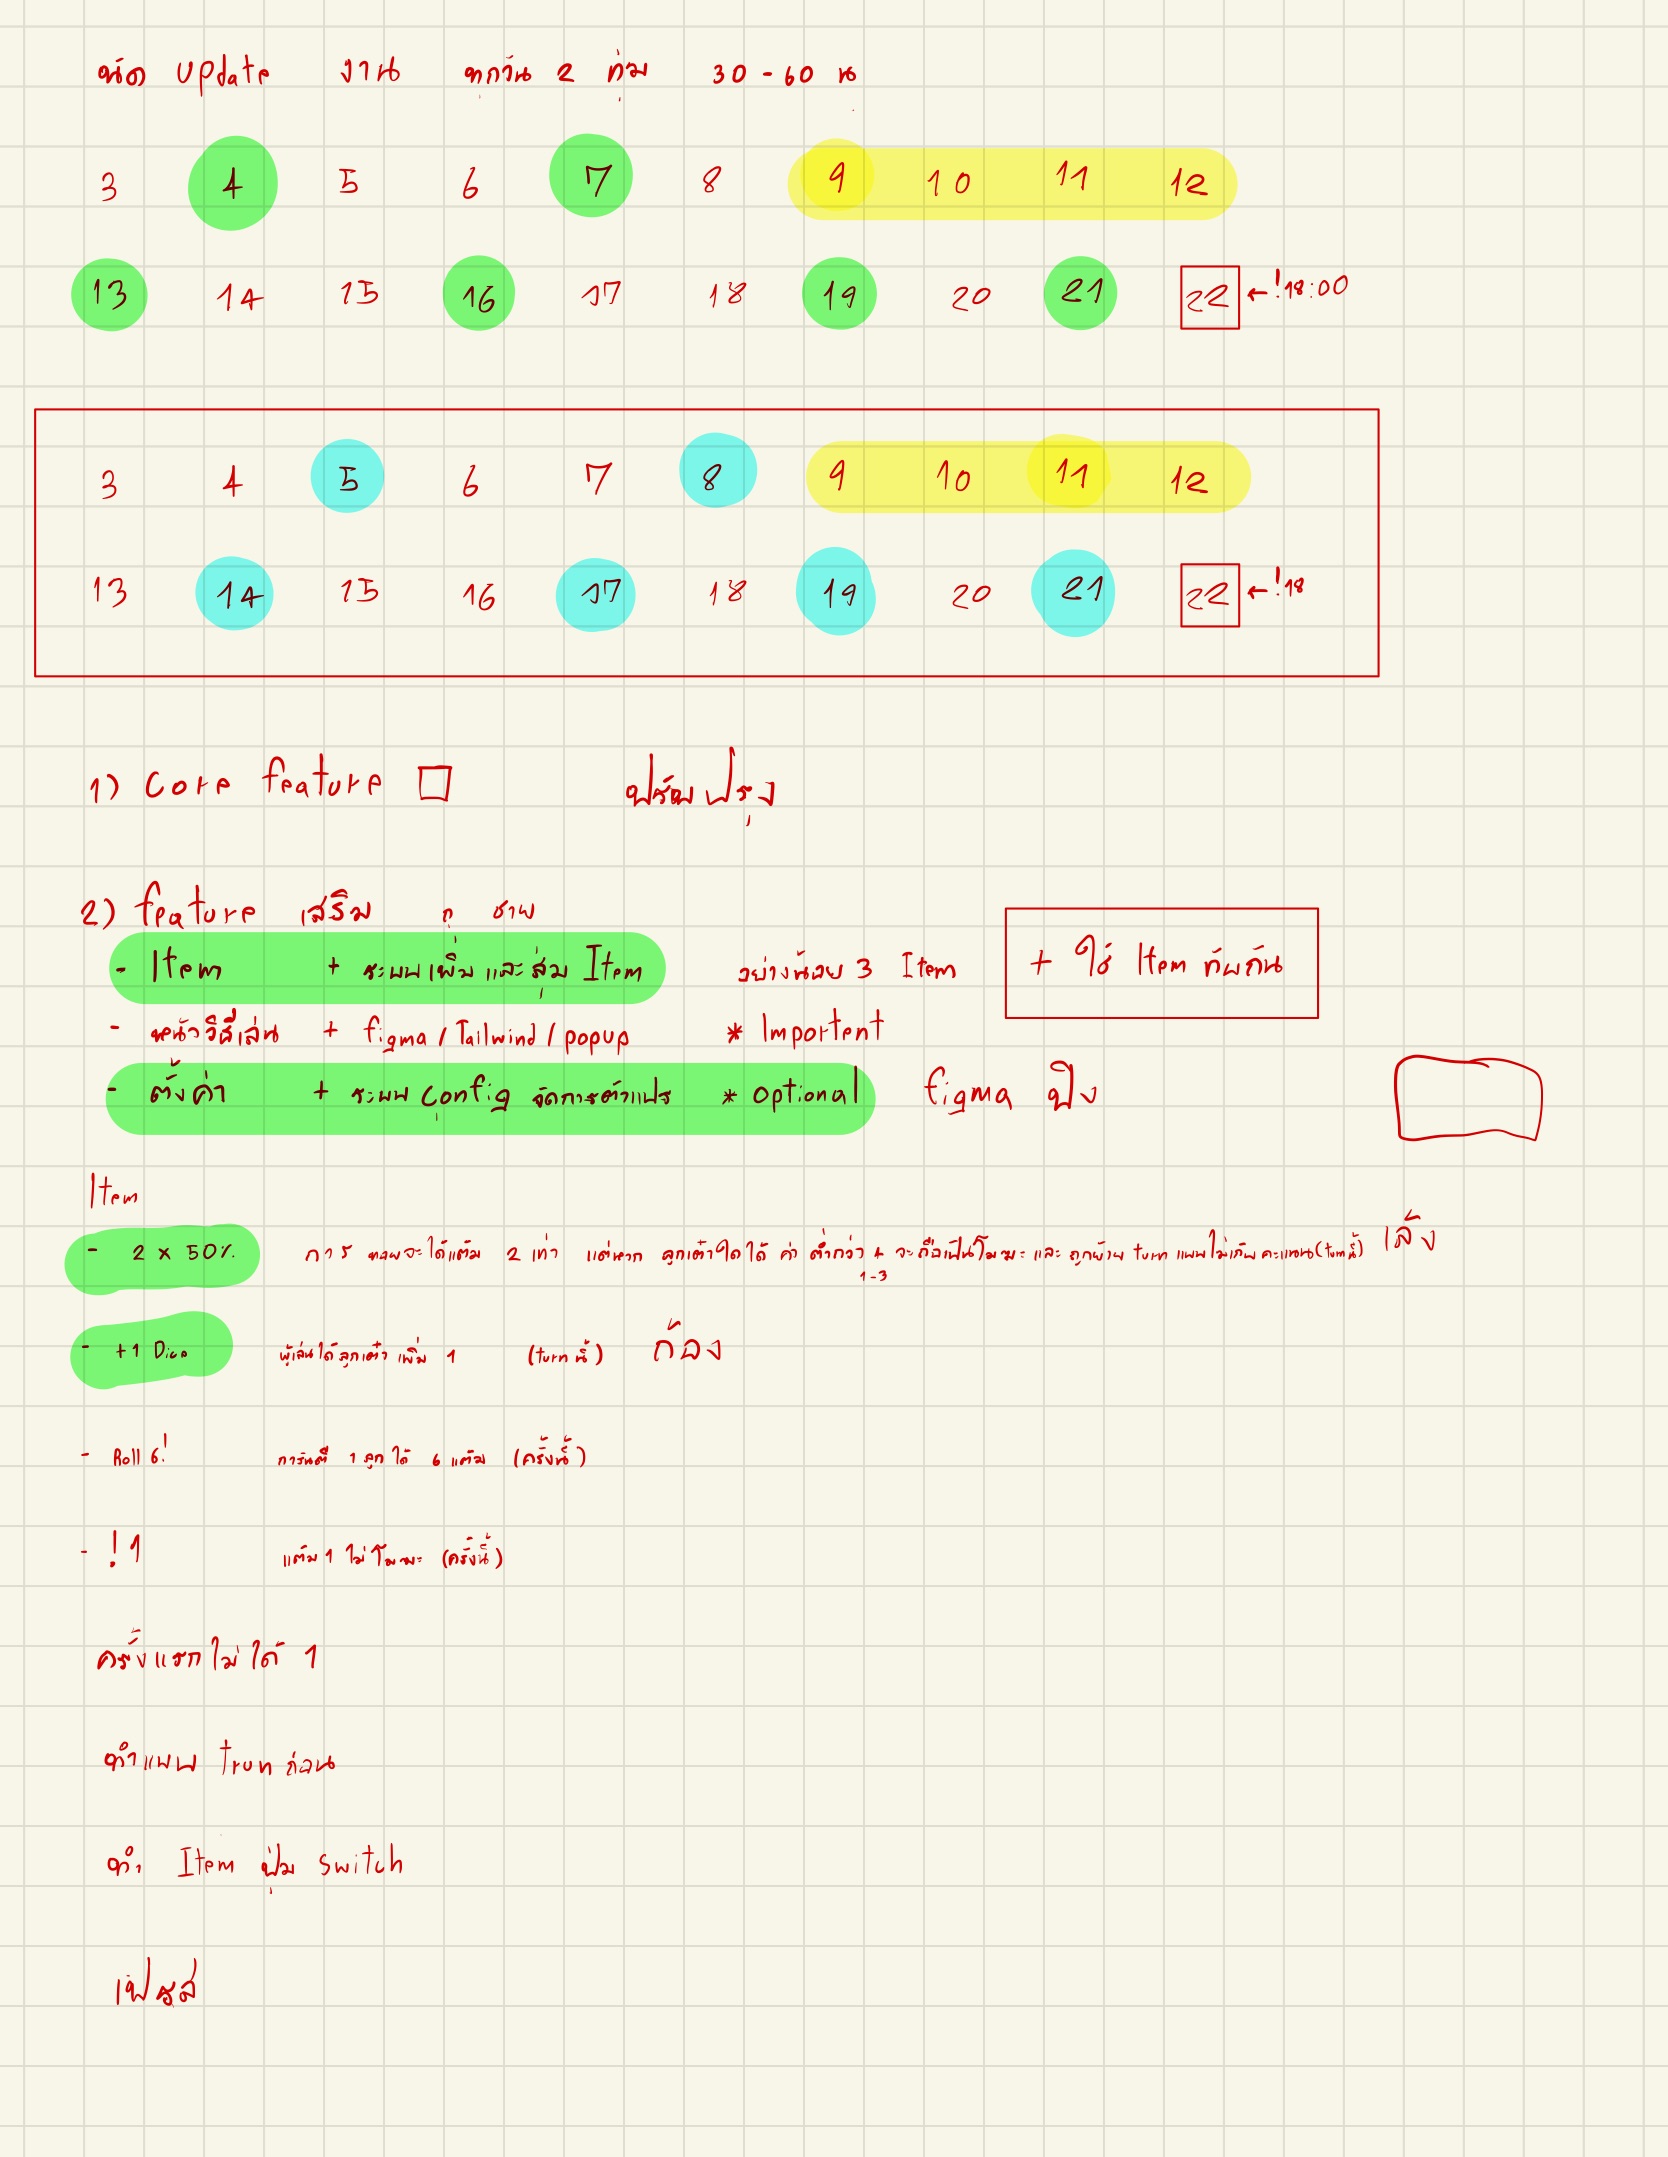 นัด Update งาน ทุกวัน 2 ทุ่ม 30 - 60 น
3 4 5 6 7 8 9 10 11 12
13 14 15 16 17 18 19 20 21 22 ← !18:00
3 4 5 6 7 8 9 10 11 12
13 14 15 16 17 18 19 20 21 22 ← !18
1) Core feature □ ปรับปรุง
2) feature เสริม
- Item + ระบบเพิ่มและสุ่ม Item อย่างน้อย 3 Item + ใช้ Item ทับกัน
- หน้าวิธีเล่น + figma / Tailwind / popup * Importent
- ตั้งค่า + ระบบ Config จัดการตัวแปร * Optional figma ปิง
Item
- 2 x 50% การทอยจะได้แต้ม 2 เท่า แต่หาก ลูกเต๋าใดได้ ค่า ต่ำกว่า 4 จะถือเป็นโมฆะ และ ถูกย้าย turn แบบไม่เก็บคะแนน (turn นี้) เล้ง
1-3
- +1 Dice ผู้เล่นได้ลูกเต๋า เพิ่ม 1 (turn นี้) ก้อง
- Roll 6! การันตี 1 ลูก ได้ 6 แต้ม (ครั้งนี้)
- !1 แต้ม 1 ไม่โมฆะ (ครั้งนี้)
ครั้งแรกไม่ได้ 1
ทำแบบ trun ก่อน
ทำ Item ปุ่ม Switch